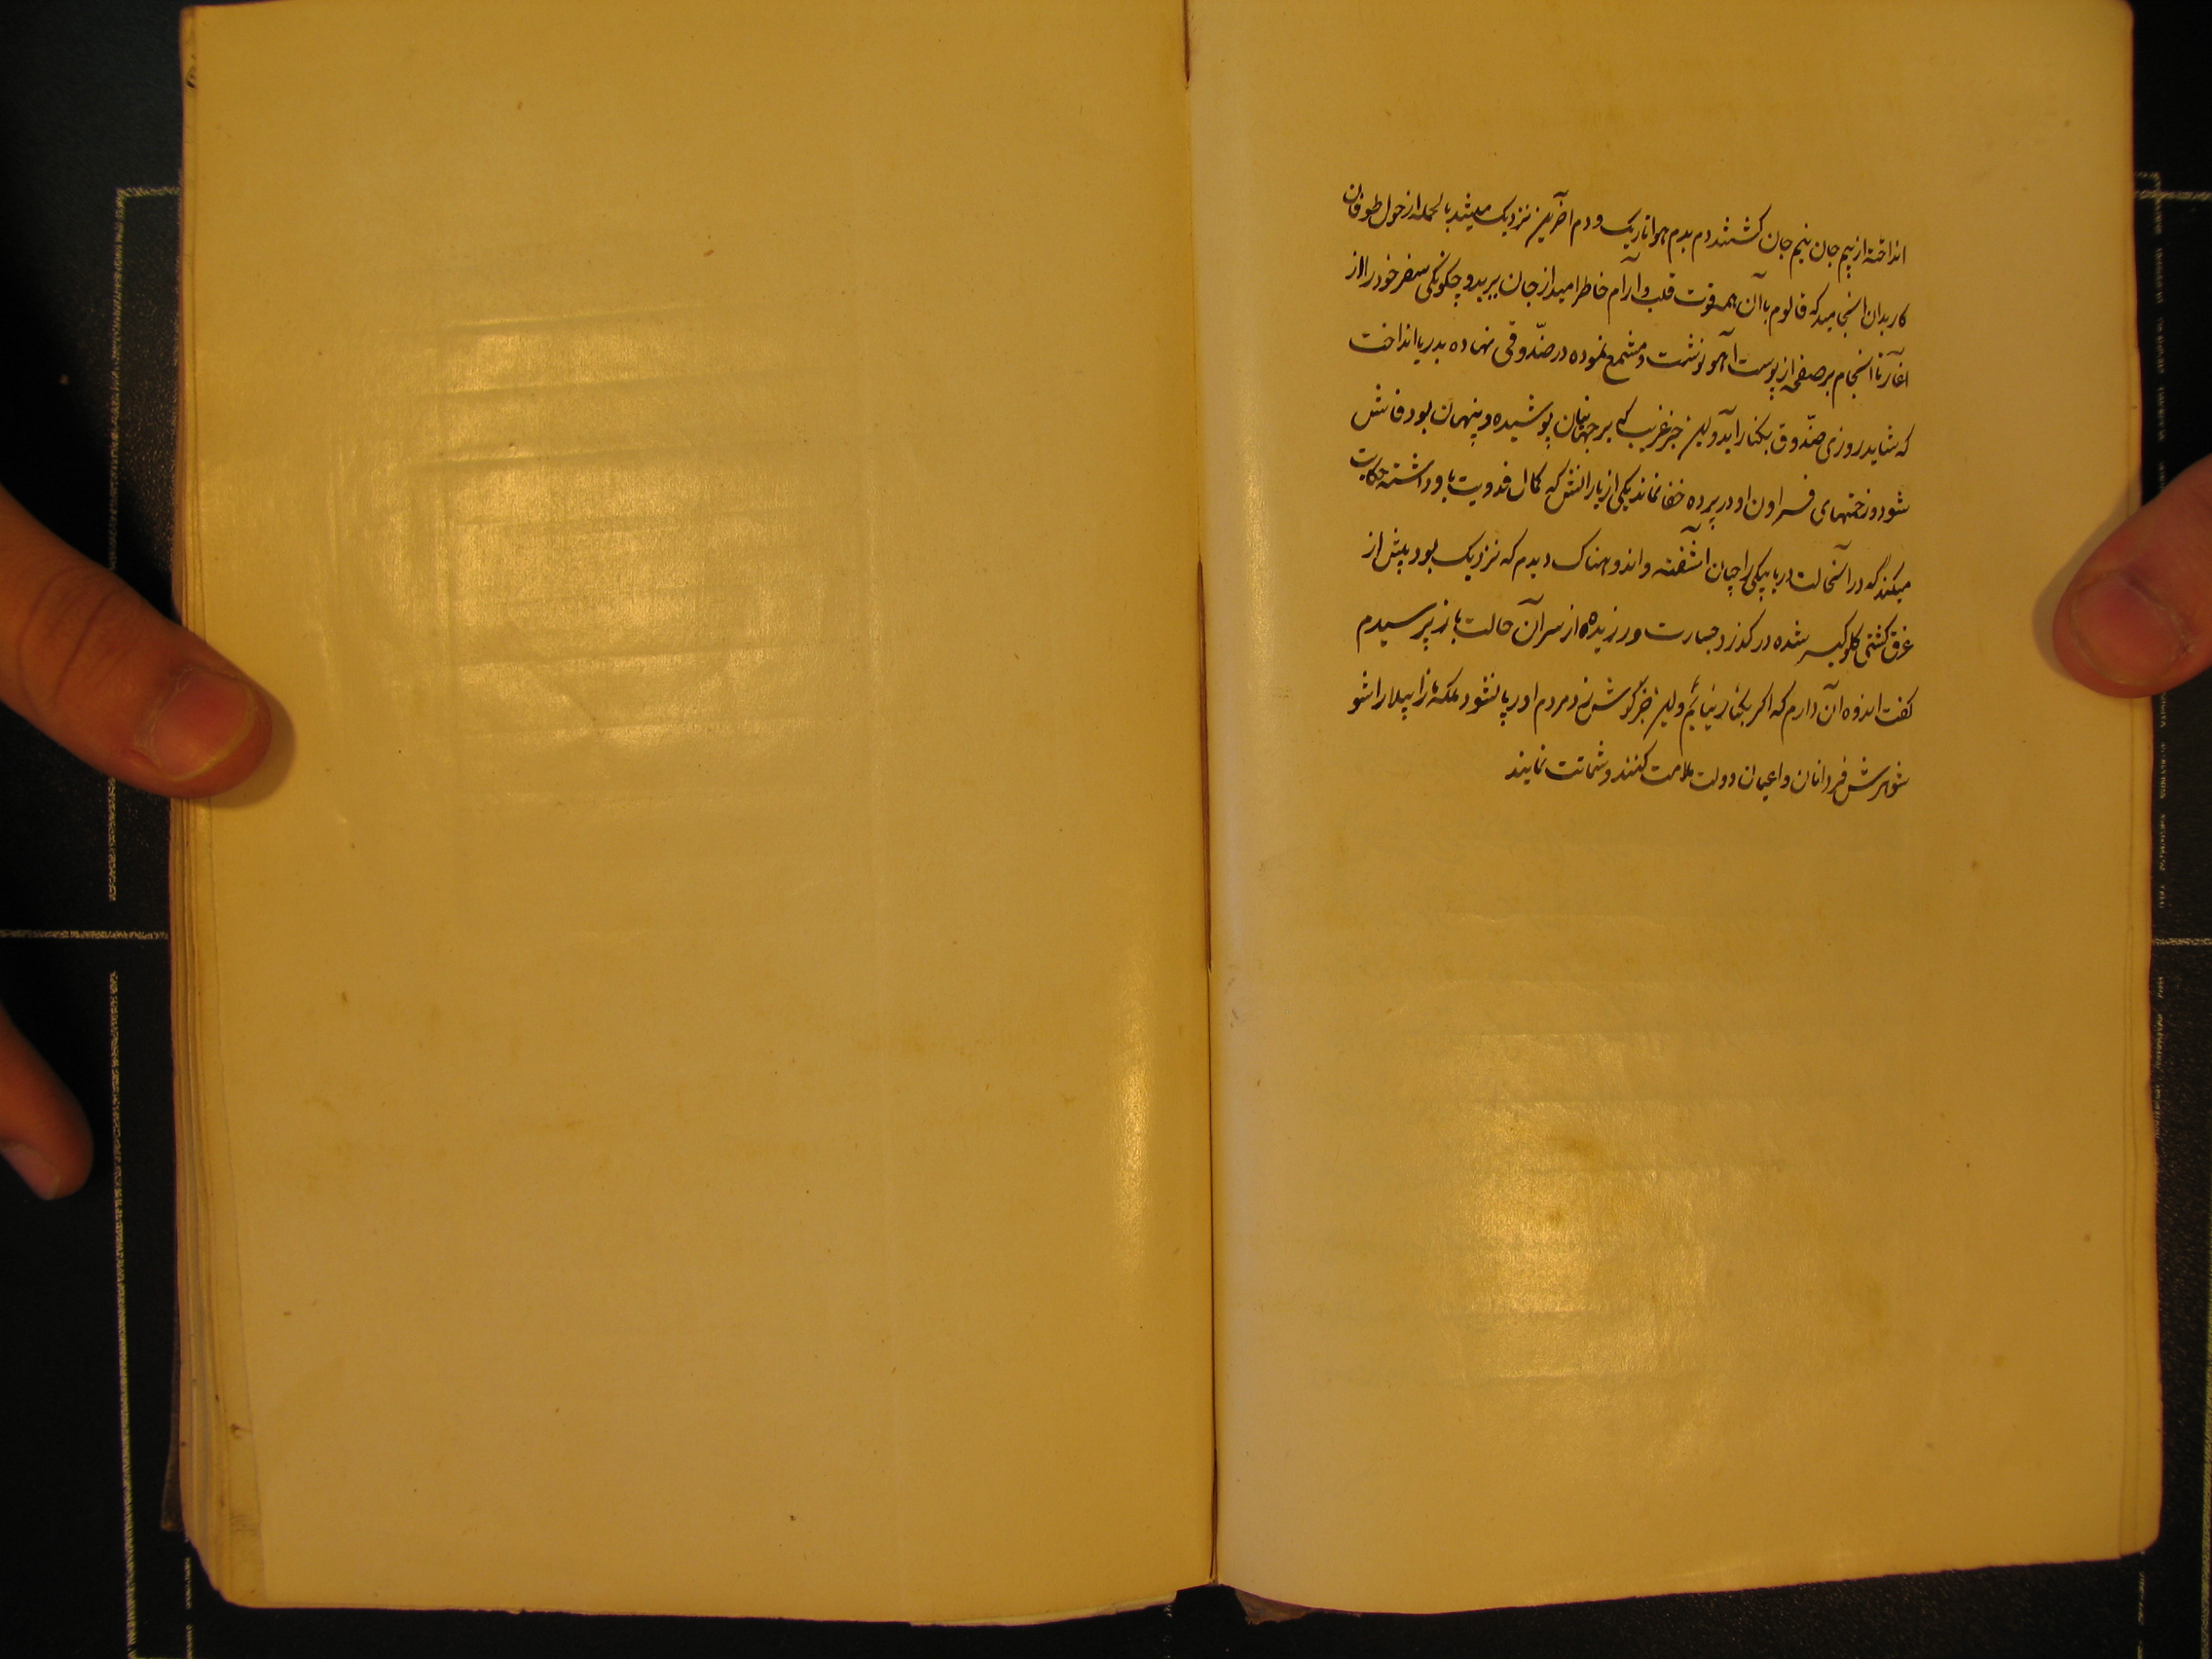 انداخته از بیم جان نیم جان گشتند دم بدم هوا تاریک و دم آخرین نزدیک میشد بالجمله از حول طوفان
کار بدان انجامید که قالوم با آن همه قوت قلب و آرام خاطر امید از جان برید و چگونگی سفر خود را از
آغاز تا انجام بر صفحه از پوست آهو نوشت و مشمع نموده در صندوقی نهاده بدریا انداخت
که شاید روزی صندوق بکنار آید و این خبر غریب که بر جهانیان پوشیده و پنهان بود فاش
شود و زحمتهای فراون او در پرده خفا نماند یکی از یارانش که کمال فدویت باو داشته حکایت
میکند که در آنحالت دریابیکی را چنان آشفته و اندوهناک دیدم که نزدیک بود پیش از
غرق کشتی گلوگیر شده در گذرد جسارت ورزیده از سر آن حالت باز پرسیدم
گفت اندوه آن دارم که اگر بکنار نیائیم و این خبر گوش زد مردم اورپا نشود ملکه ایزابیلا را شو
شوهرش فردانان و اعیان دولت ملامت کنند و شماتت نمایند